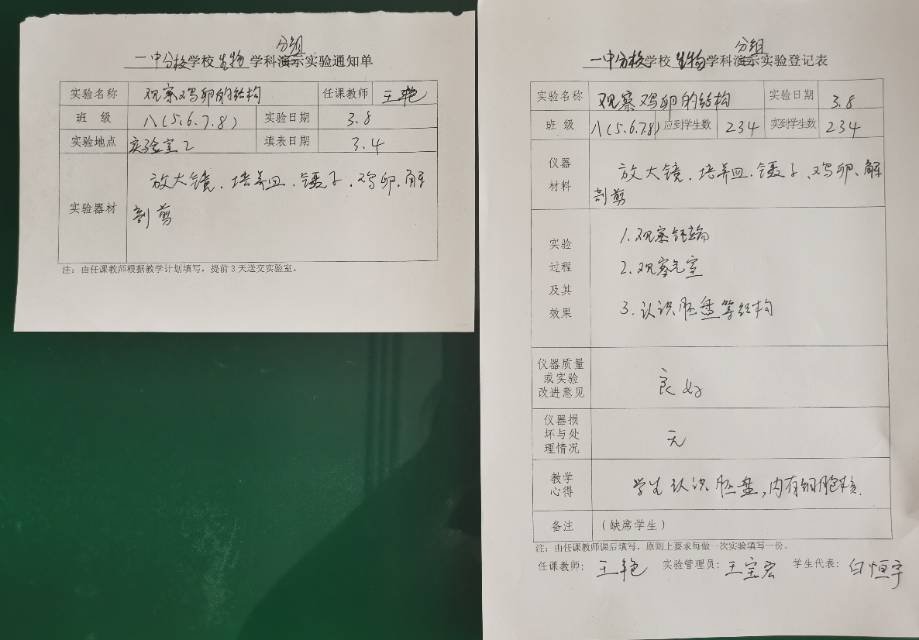 分组
一中分校学校生物学科演示实验通知单
实验名称 观察鸡卵的结构 任课教师 王艳
班级 八(5.6.7.8) 实验日期 3.8
实验地点 实验室2 填表日期 3.4
实验器材 放大镜、培养皿、镊子、鸡卵、解
剖剪
注：由任课教师根据教学计划填写，提前3天送交实验室。
分组
一中分校学校生物学科演示实验登记表
实验名称 观察鸡卵的结构 实验日期 3.8
班级 八(5.6.7.8) 应到学生数 234 实到学生数 234
仪器
材料
放大镜、培养皿、镊子、鸡卵、解
剖剪
实验
过程
及其
效果
1.观察
2.观察气室
3.认识胚盘等结构
仪器质量
或实验
改进意见
良好
仪器损
坏与处
理情况
无
教学
心得
学生认识胚盘，内有细胞核.
备注 (缺席学生)
注：由任课教师课后填写，原则上要求每做一次实验填写一份。
任课教师：王艳 实验管理员：王宝宏 学生代表：白恒宇